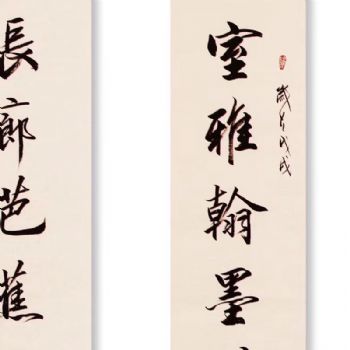 歲在戊戌
室雅翰墨
長廊芭蕉